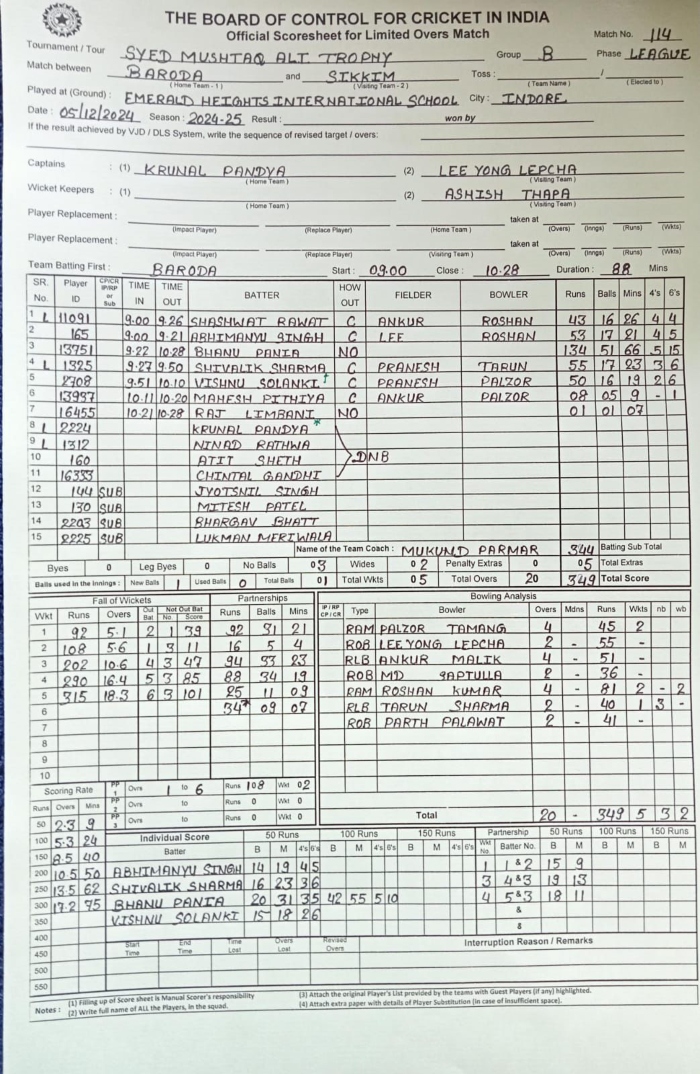 THE BOARD OF CONTROL FOR CRICKET IN INDIA
Official Scoresheet for Limited Overs Match
Match No. 114
Tournament / Tour SYED MUSHTAQ ALI TROPHY Group B Phase LEAGUE
Match between BARODA and SIKKIM Toss : /
(Home Team - 1) (Visiting Team - 2) (Team Name) (Elected to)
Played at (Ground) : EMERALD HEIGHTS INTERNATIONAL SCHOOL City : INDORE
Date : 05/12/2024 Season : 2024-25 Result : won by
If the result achieved by VJD / DLS System, write the sequence of revised target / overs:
Captains : (1) KRUNAL PANDYA (2) LEE YONG LEPCHA
(Home Team) (Visiting Team)
Wicket Keepers : (1) (2) ASHISH THAPA
(Home Team) (Visiting Team)
Player Replacement : taken at
(Impact Player) (Replace Player) (Home Team) (Overs) (Inngs) (Runs) (Wkts)
Player Replacement : taken at
(Impact Player) (Replace Player) (Visiting Team) (Overs) (Inngs) (Runs) (Wkts)
Team Batting First : BARODA Start : 09.00 Close : 10.28 Duration : 88 Mins
SR. No. Player ID CP/CR IP/RP or Sub TIME IN TIME OUT BATTER HOW OUT FIELDER BOWLER Runs Balls Mins 4's 6's
1 L 11091 9.00 9.26 SHASHWAT RAWAT C ANKUR ROSHAN 43 16 26 4 4
2 165 9.00 9.21 ABHIMANYU SINGH C LEE ROSHAN 53 17 21 4 5
3 13751 9.22 10.28 BHANU PANIA NO 134 51 66 5 15
4 L 1325 9.27 9.50 SHIVALIK SHARMA C PRANESH TARUN 55 17 23 3 6
5 2708 9.51 10.10 VISHNU SOLANKI† C PRANESH PALZOR 50 16 19 2 6
6 13997 10.11 10.20 MAHESH PITHIYA C ANKUR PALZOR 08 05 9 - 1
7 16455 10.21 10.28 RAJ LIMBANI NO 01 01 07
8 L 2224 KRUNAL PANDYA *
9 L 1312 NINAD RATHWA
10 160 ATIT SHETH DNB
11 16333 CHINTAL GANDHI
12 144 SUB JYOTSNIL SINGH
13 130 SUB MITESH PATEL
14 2203 SUB BHARGAV BHATT
15 2225 SUB LUKMAN MERIWALA
Name of the Team Coach : MUKUND PARMAR 344 Batting Sub Total
Byes 0 Leg Byes 0 No Balls 03 Wides 02 Penalty Extras 0 05 Total Extras
Balls used in the Innings : New Balls 1 Used Balls 0 Total Balls 01 Total Wkts 05 Total Overs 20 349 Total Score
Fall of Wickets Partnerships Bowling Analysis
Wkt Runs Overs Out Bat Not Out Bat No. Score Runs Balls Mins IP / RP CP/CR Type Bowler Overs Mdns Runs Wkts nb wb
1 92 5.1 2 1 39 92 31 21 RAM PALZOR TAMANG 4 45 2
2 108 5.6 1 3 11 16 5 4 ROB LEE YONG LEPCHA 2 - 55 -
3 202 10.6 4 3 47 94 33 23 RLB ANKUR MALIK 4 - 51 -
4 290 16.4 5 3 85 88 34 19 ROB MD SAPTULLA 2 - 36 -
5 315 18.3 6 3 101 25 11 09 RAM ROSHAN KUMAR 4 - 81 2 - 2
6 34* 09 07 RLB TARUN SHARMA 2 - 40 1 3 -
7 ROB PARTH PALAWAT 2 - 41 -
8
9
10
Scoring Rate PP 1 Ovrs 1 to 6 Runs 108 Wkt 02
Runs Overs Mins PP 2 Ovrs to Runs 0 Wkt 0
50 2.3 9 PP 3 Ovrs to Runs 0 Wkt 0 Total 20 - 349 5 3 2
100 5.3 24 Individual Score 50 Runs 100 Runs 150 Runs Partnership 50 Runs 100 Runs 150 Runs
150 8.5 40 Batter B M 4's 6's B M 4's 6's B M 4's 6's Wkt No. Batter No. B M B M B M
200 10.5 50 ABHIMANYU SINGH 14 19 4 5 1 1 & 2 15 9
250 13.5 62 SHIVALIK SHARMA 16 23 3 6 3 4 & 3 19 13
300 17.2 75 BHANU PANIA 20 31 3 5 42 55 5 10 4 5 & 3 18 11
350 VISHNU SOLANKI 15 18 2 6 &
400 &
450 Start Time End Time Time Lost Overs Lost Revised Overs Interruption Reason / Remarks
500
550
Notes : (1) Filling up of Score sheet is Manual Scorer's responsibility (3) Attach the original Player's List provided by the teams with Guest Players (if any) highlighted.
(2) Write full name of ALL the Players, in the squad. (4) Attach extra paper with details of Player Substitution (in case of insufficient space).